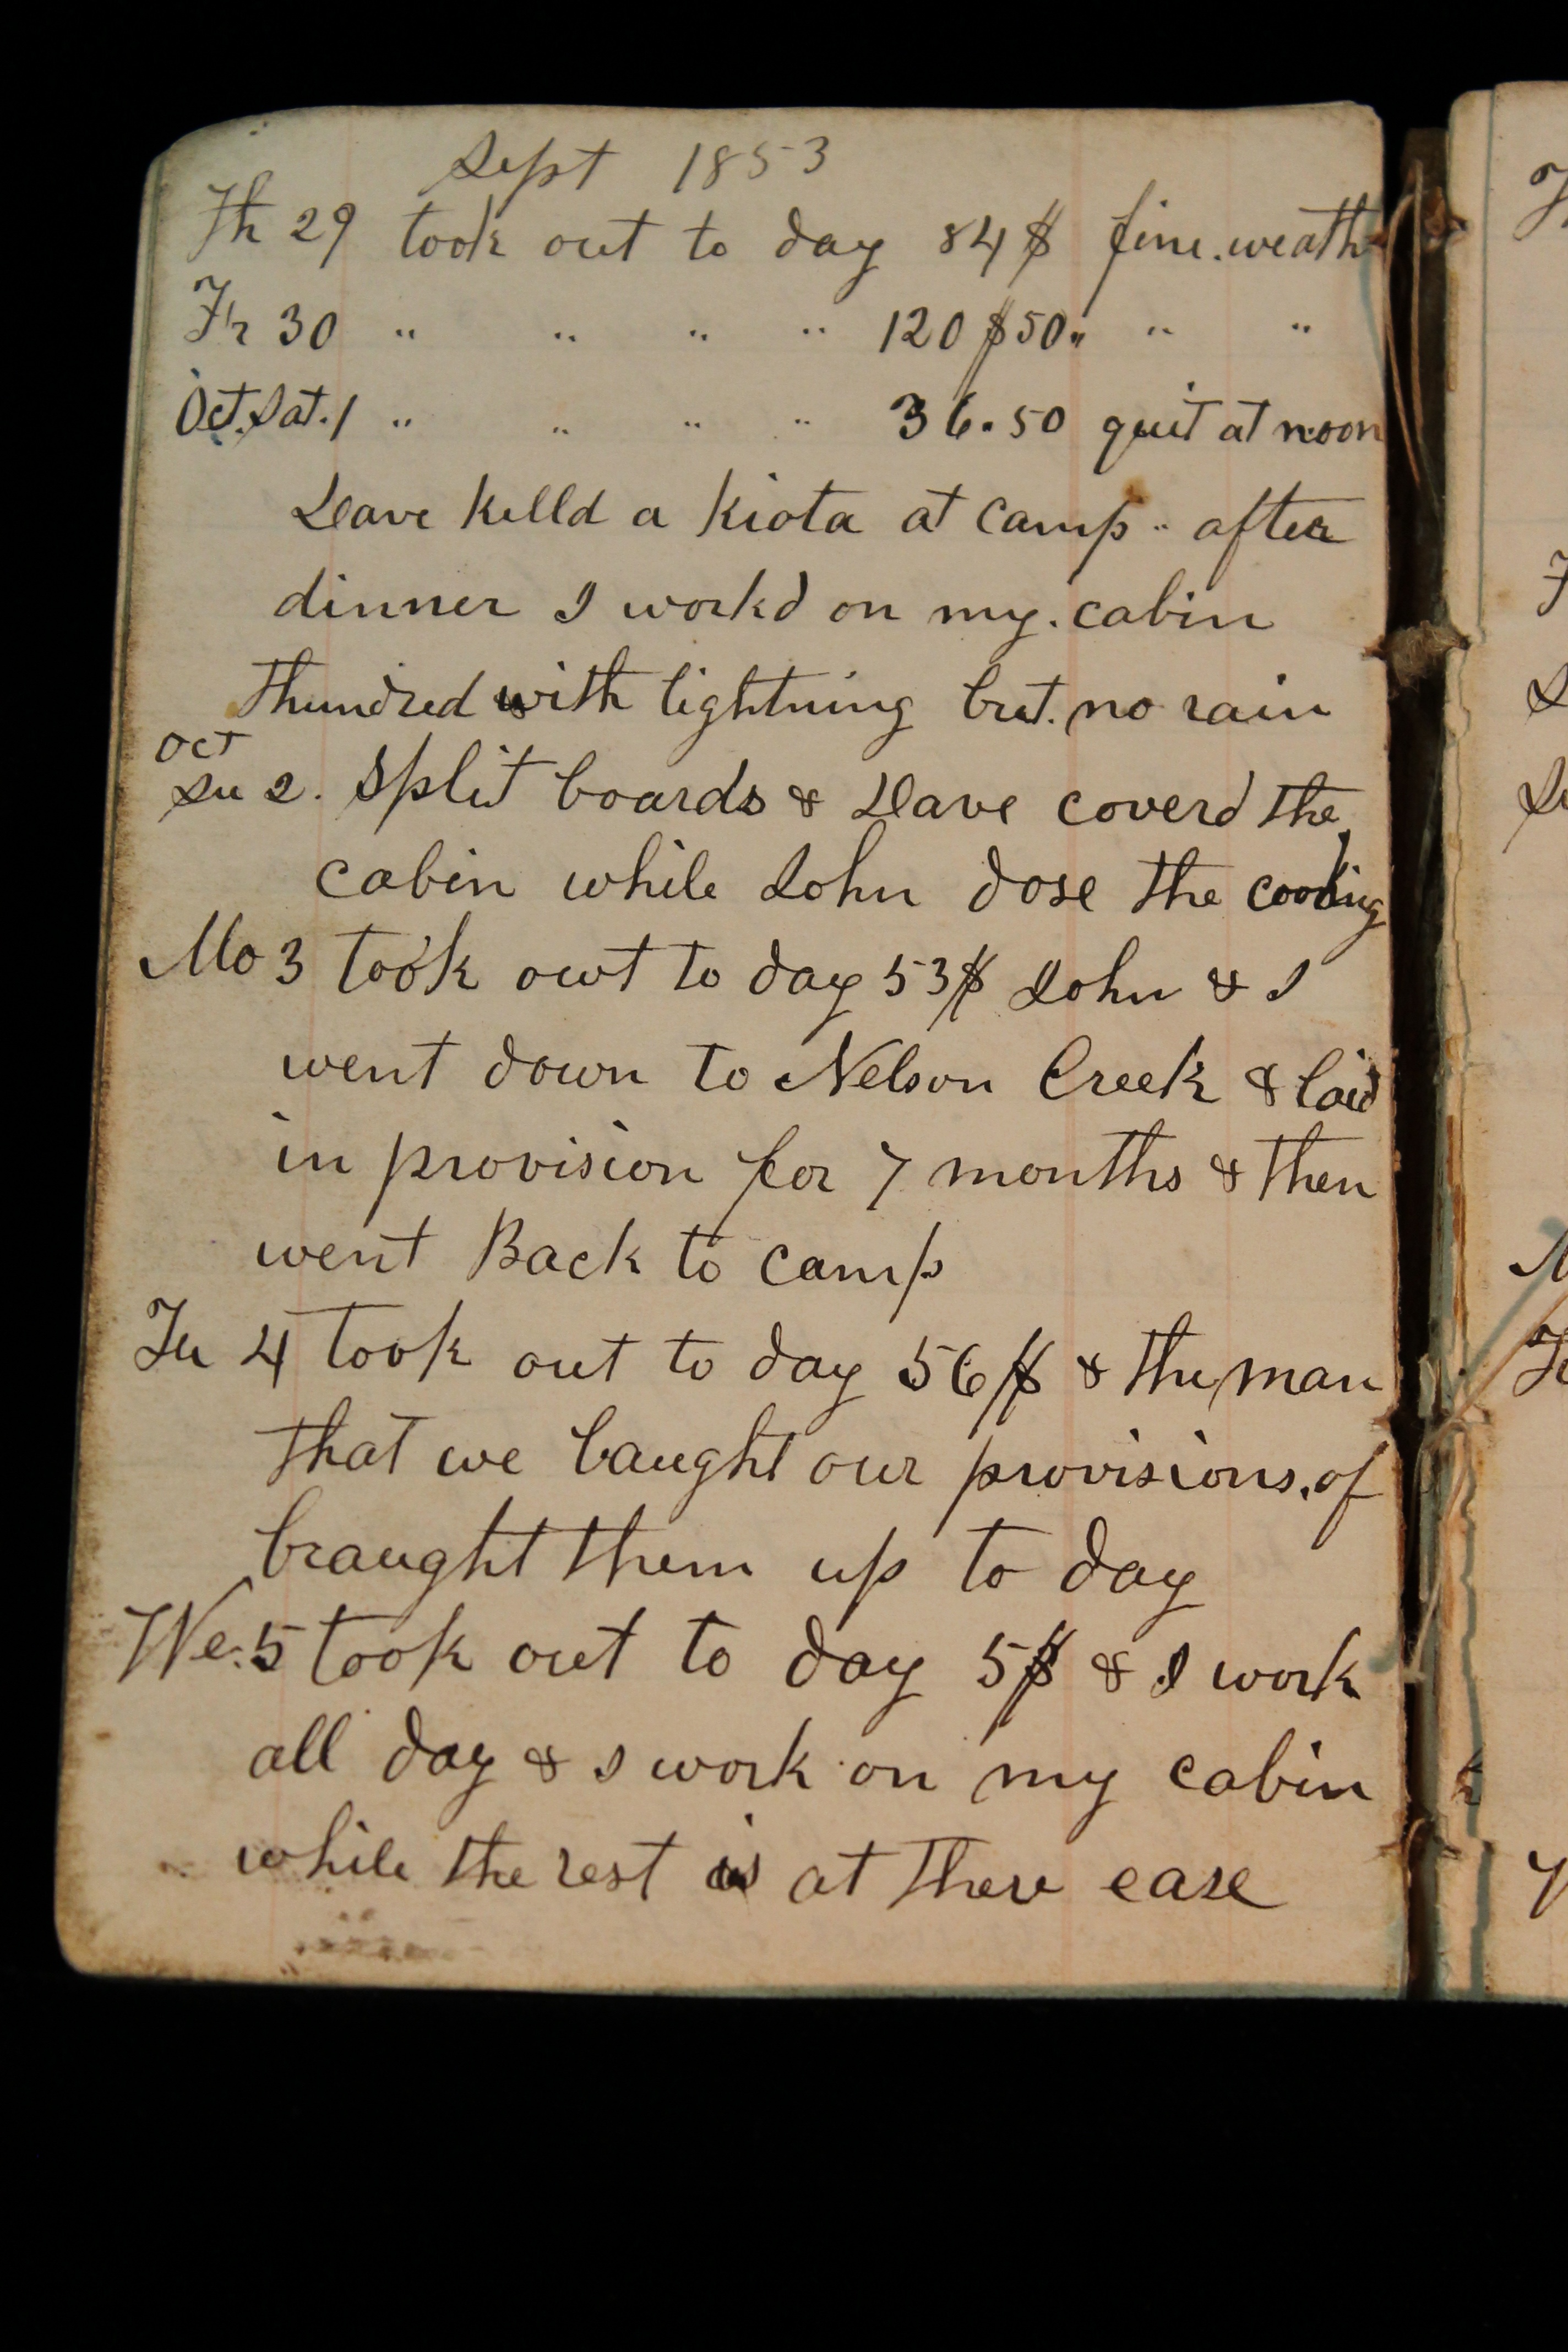 Sept 1853
Th 29 took out to day 84$ fine. weath
Fr 30 " " " " 120$50 " " "
Oct. Sat. 1 " " " " 36.50 quit at noon
Dave killd a kiota at camp after
dinner I workd on my. cabin
Thundred with lightning but. no rain
Oct
Su 2. Split boards & Dave coverd the
cabin while John dose the cooking
Mo 3 took out to day 53$ John & I
went down to Nelson Creek & laid
in provision for 7 months & then
went Back to camp
Tu 4 took out to day 56$ & the man
that we baught our provisions. of
braught them up to day
We. 5 took out to day 5$ & I work
all day & I work on my cabin
while the rest is at there ease